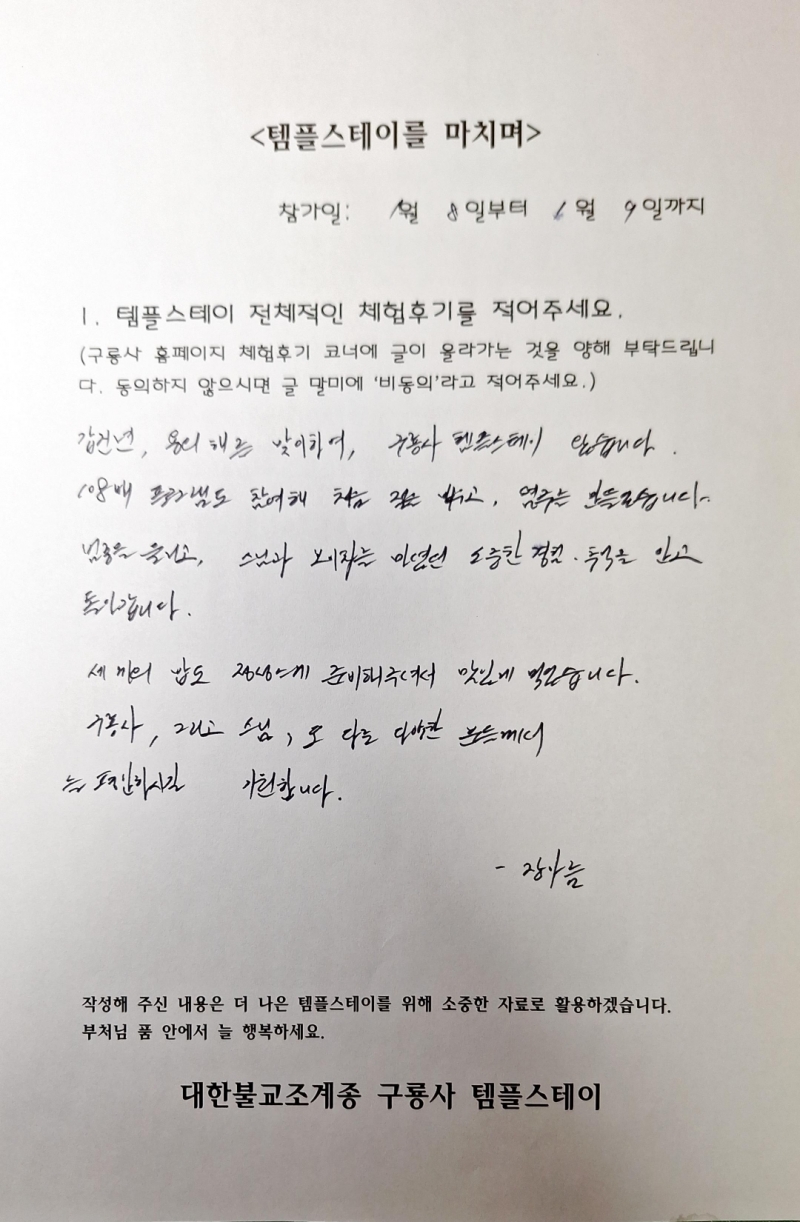 <템플스테이를 마치며>
참가일: 1월 8일부터 1월 9일까지
1. 템플스테이 전체적인 체험후기를 적어주세요.
(구룡사 홈페이지 체험후기 코너에 글이 올라가는 것을 양해 부탁드립니
다. 동의하지 않으시면 글 말미에 '비동의'라고 적어주세요.)
갑진년, 용의 해를 맞이하여, 구룡사 템플스테이 왔습니다.
108배 프로그램도 참여해 처음 절을 하고, 염주를 만들었습니다.
범종을 울리고, 스님과 소중한 경험. 추억을 안고
돌아갑니다.
세 끼의 밥도 정성스레 준비해주셔서 맛있게 먹었습니다.
구룡사, 그리고 스님, 또 다른 분들께서
늘 평안하시길 기원합니다.
- 장아름
작성해 주신 내용은 더 나은 템플스테이를 위해 소중한 자료로 활용하겠습니다.
부처님 품 안에서 늘 행복하세요.
대한불교조계종 구룡사 템플스테이